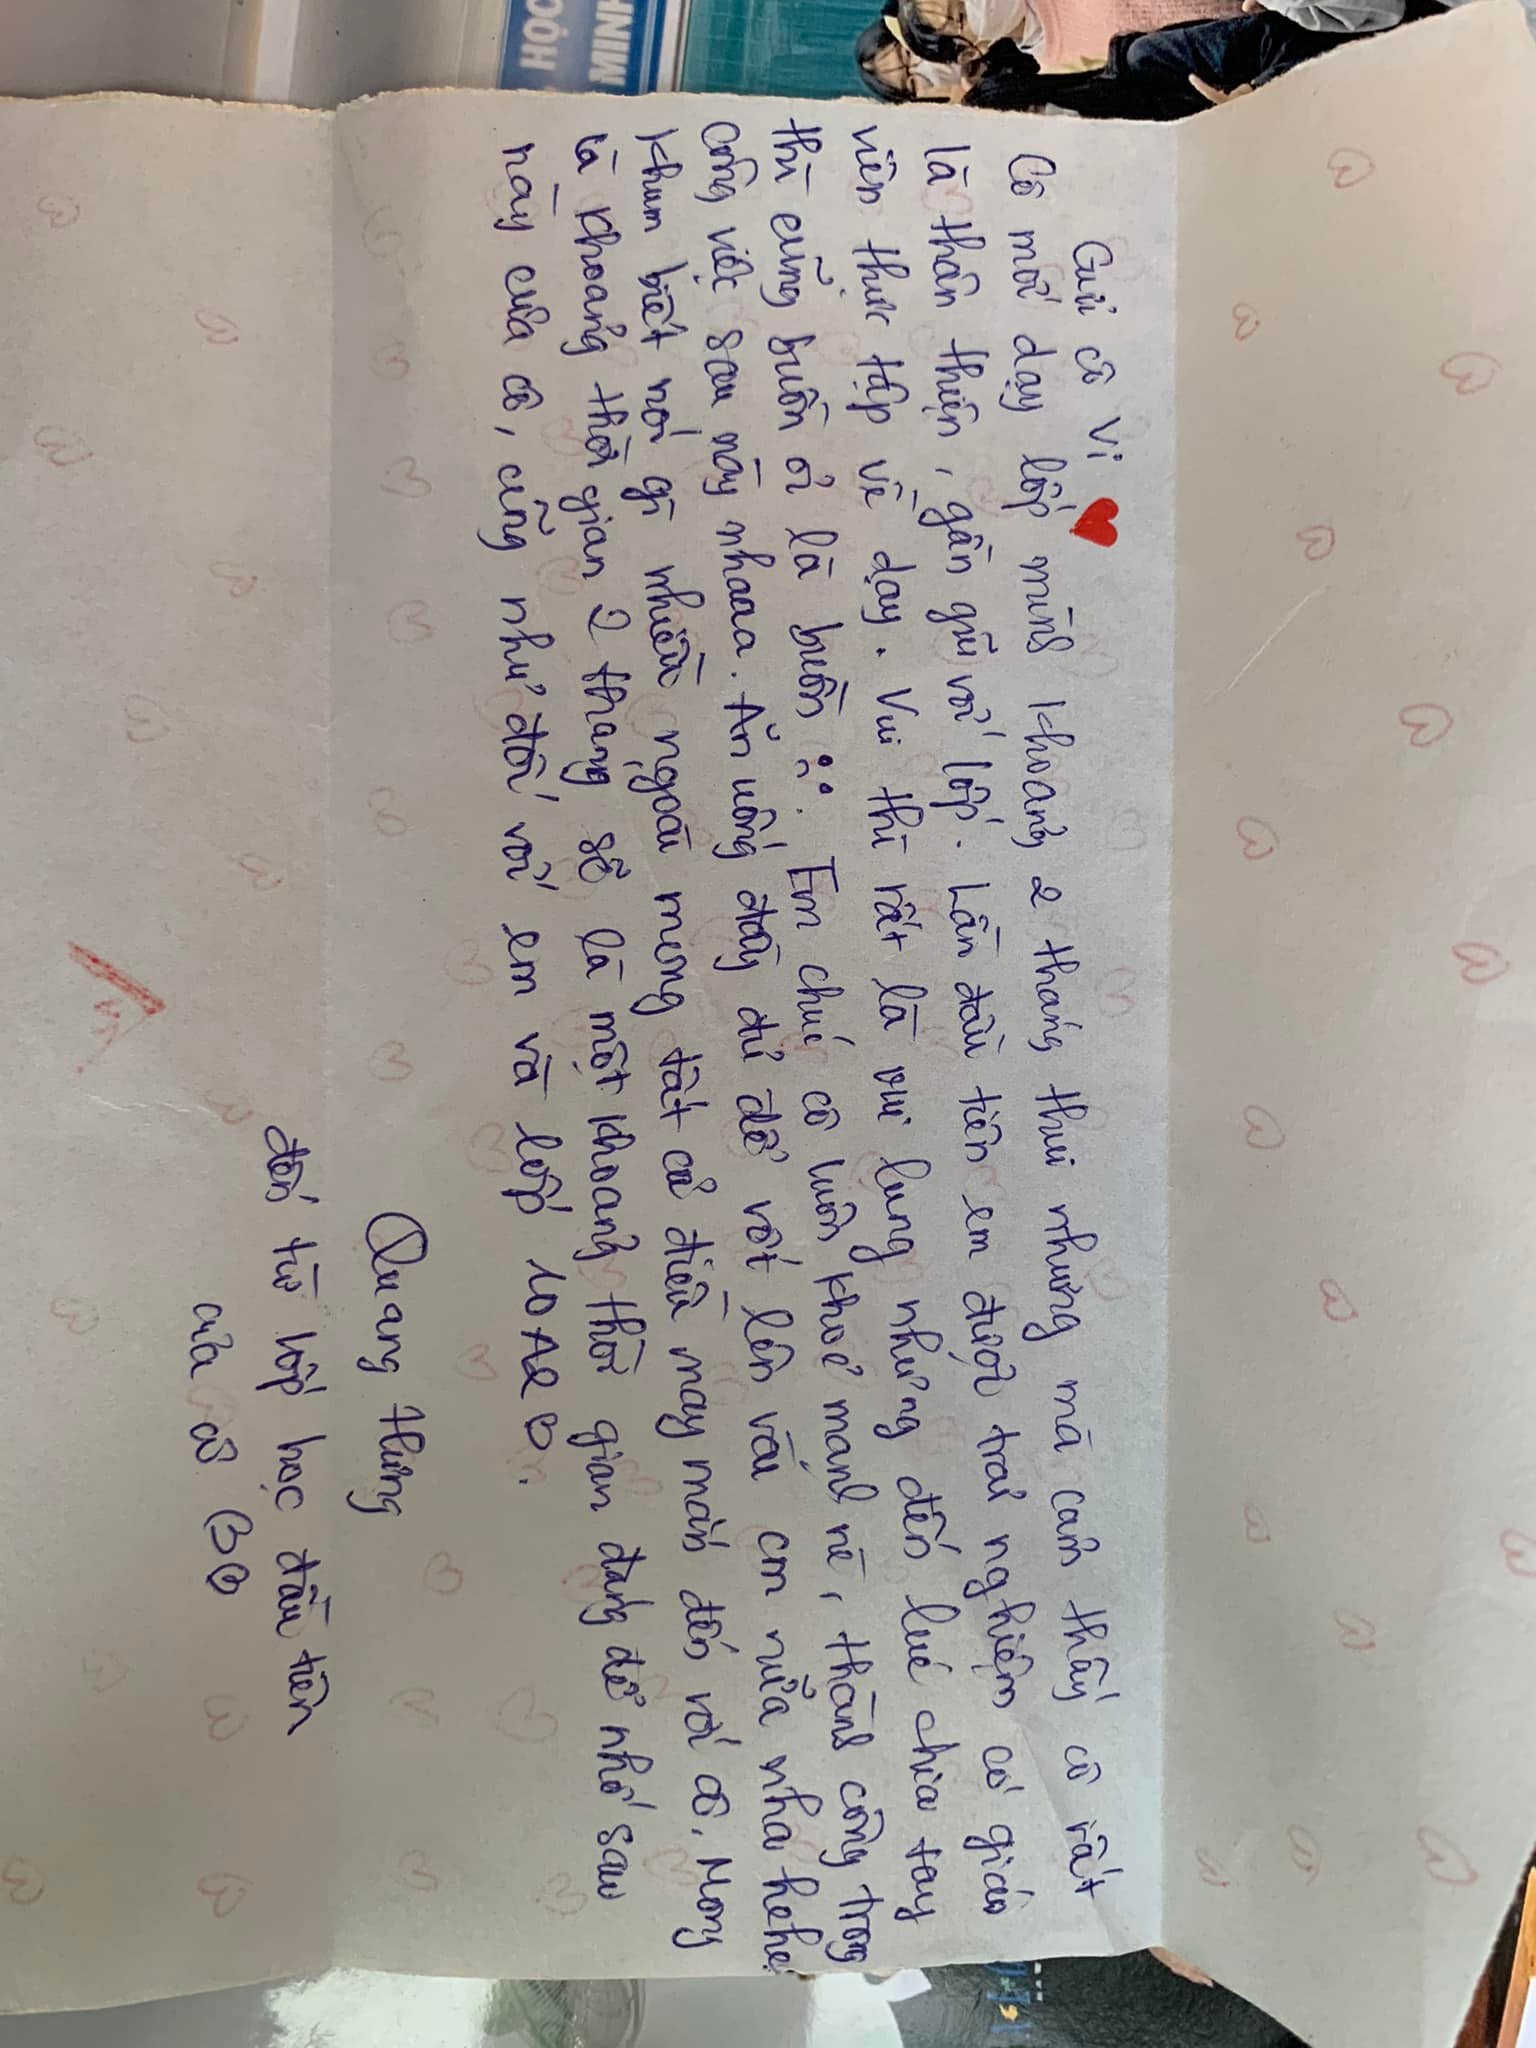 HỌC
MINH
Gửi cô Vi
Cô mới dạy lớp mình khoảng 2 tháng thui nhưng mà cảm thấy cô rất
là thân thiện, gần gũi với lớp. Lần đầu tiên em được trải nghiệm có giáo
viên thực tập về dạy. Vui thì rất là vui lung nhưng đến lúc chia tay
thì cũng buồn ơi là buồn :. Em chúc cô luôn khoẻ mạnh nè, thành công trong
công việc sau này nhaaa. Ăn uống đầy đủ để vớt lên vài cm nữa nha hehe.
Khum biết nói gì nhiều ngoài mong tất cả điều may mắn đến với cô. Mong
là khoảng thời gian 2 tháng sẽ là một khoảng thời gian đáng để nhớ sau
này của cô, cũng như đối với em và lớp 10A2.
Quang Hưng
đến từ lớp học đầu tiên
của cô